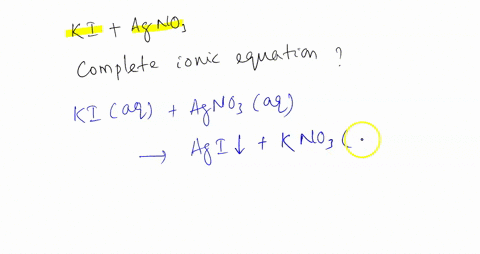 KI + AgNO₃
Complete ionic equation ?
KI (aq) + AgNO₃ (aq)
→ AgI↓ + KNO₃ (